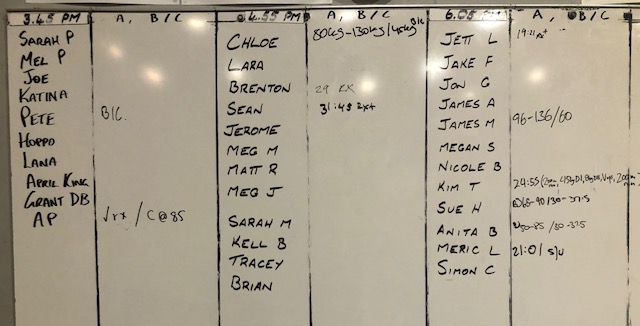 3.45 PM
A, B/C
SARAH P
MEL P
JOE
KATINA
PETE B/C.
HOPPO
LANA
APRIL KING
GRANT DB
AP √rx / C@85
4.55 PM
A, B/C
CHLOE 80kg-130kg/45kg B/C
LARA
BRENTON 29 RX
SEAN 31:45 Rx+
JEROME
MEG M
MATT R
MEG J
SARAH M
KELL B
TRACEY
BRIAN
6.05 PM
A, B/C
JETT L 19:21
JAKE F
JON G
JAMES A
JAMES M 96-136/60
MEGAN S
NICOLE B
KIM T 24:55
SUE H 65-90/30-37.5
ANITA B 50-85/30-37.5
MERIC L 21:01 s/u
SIMON C